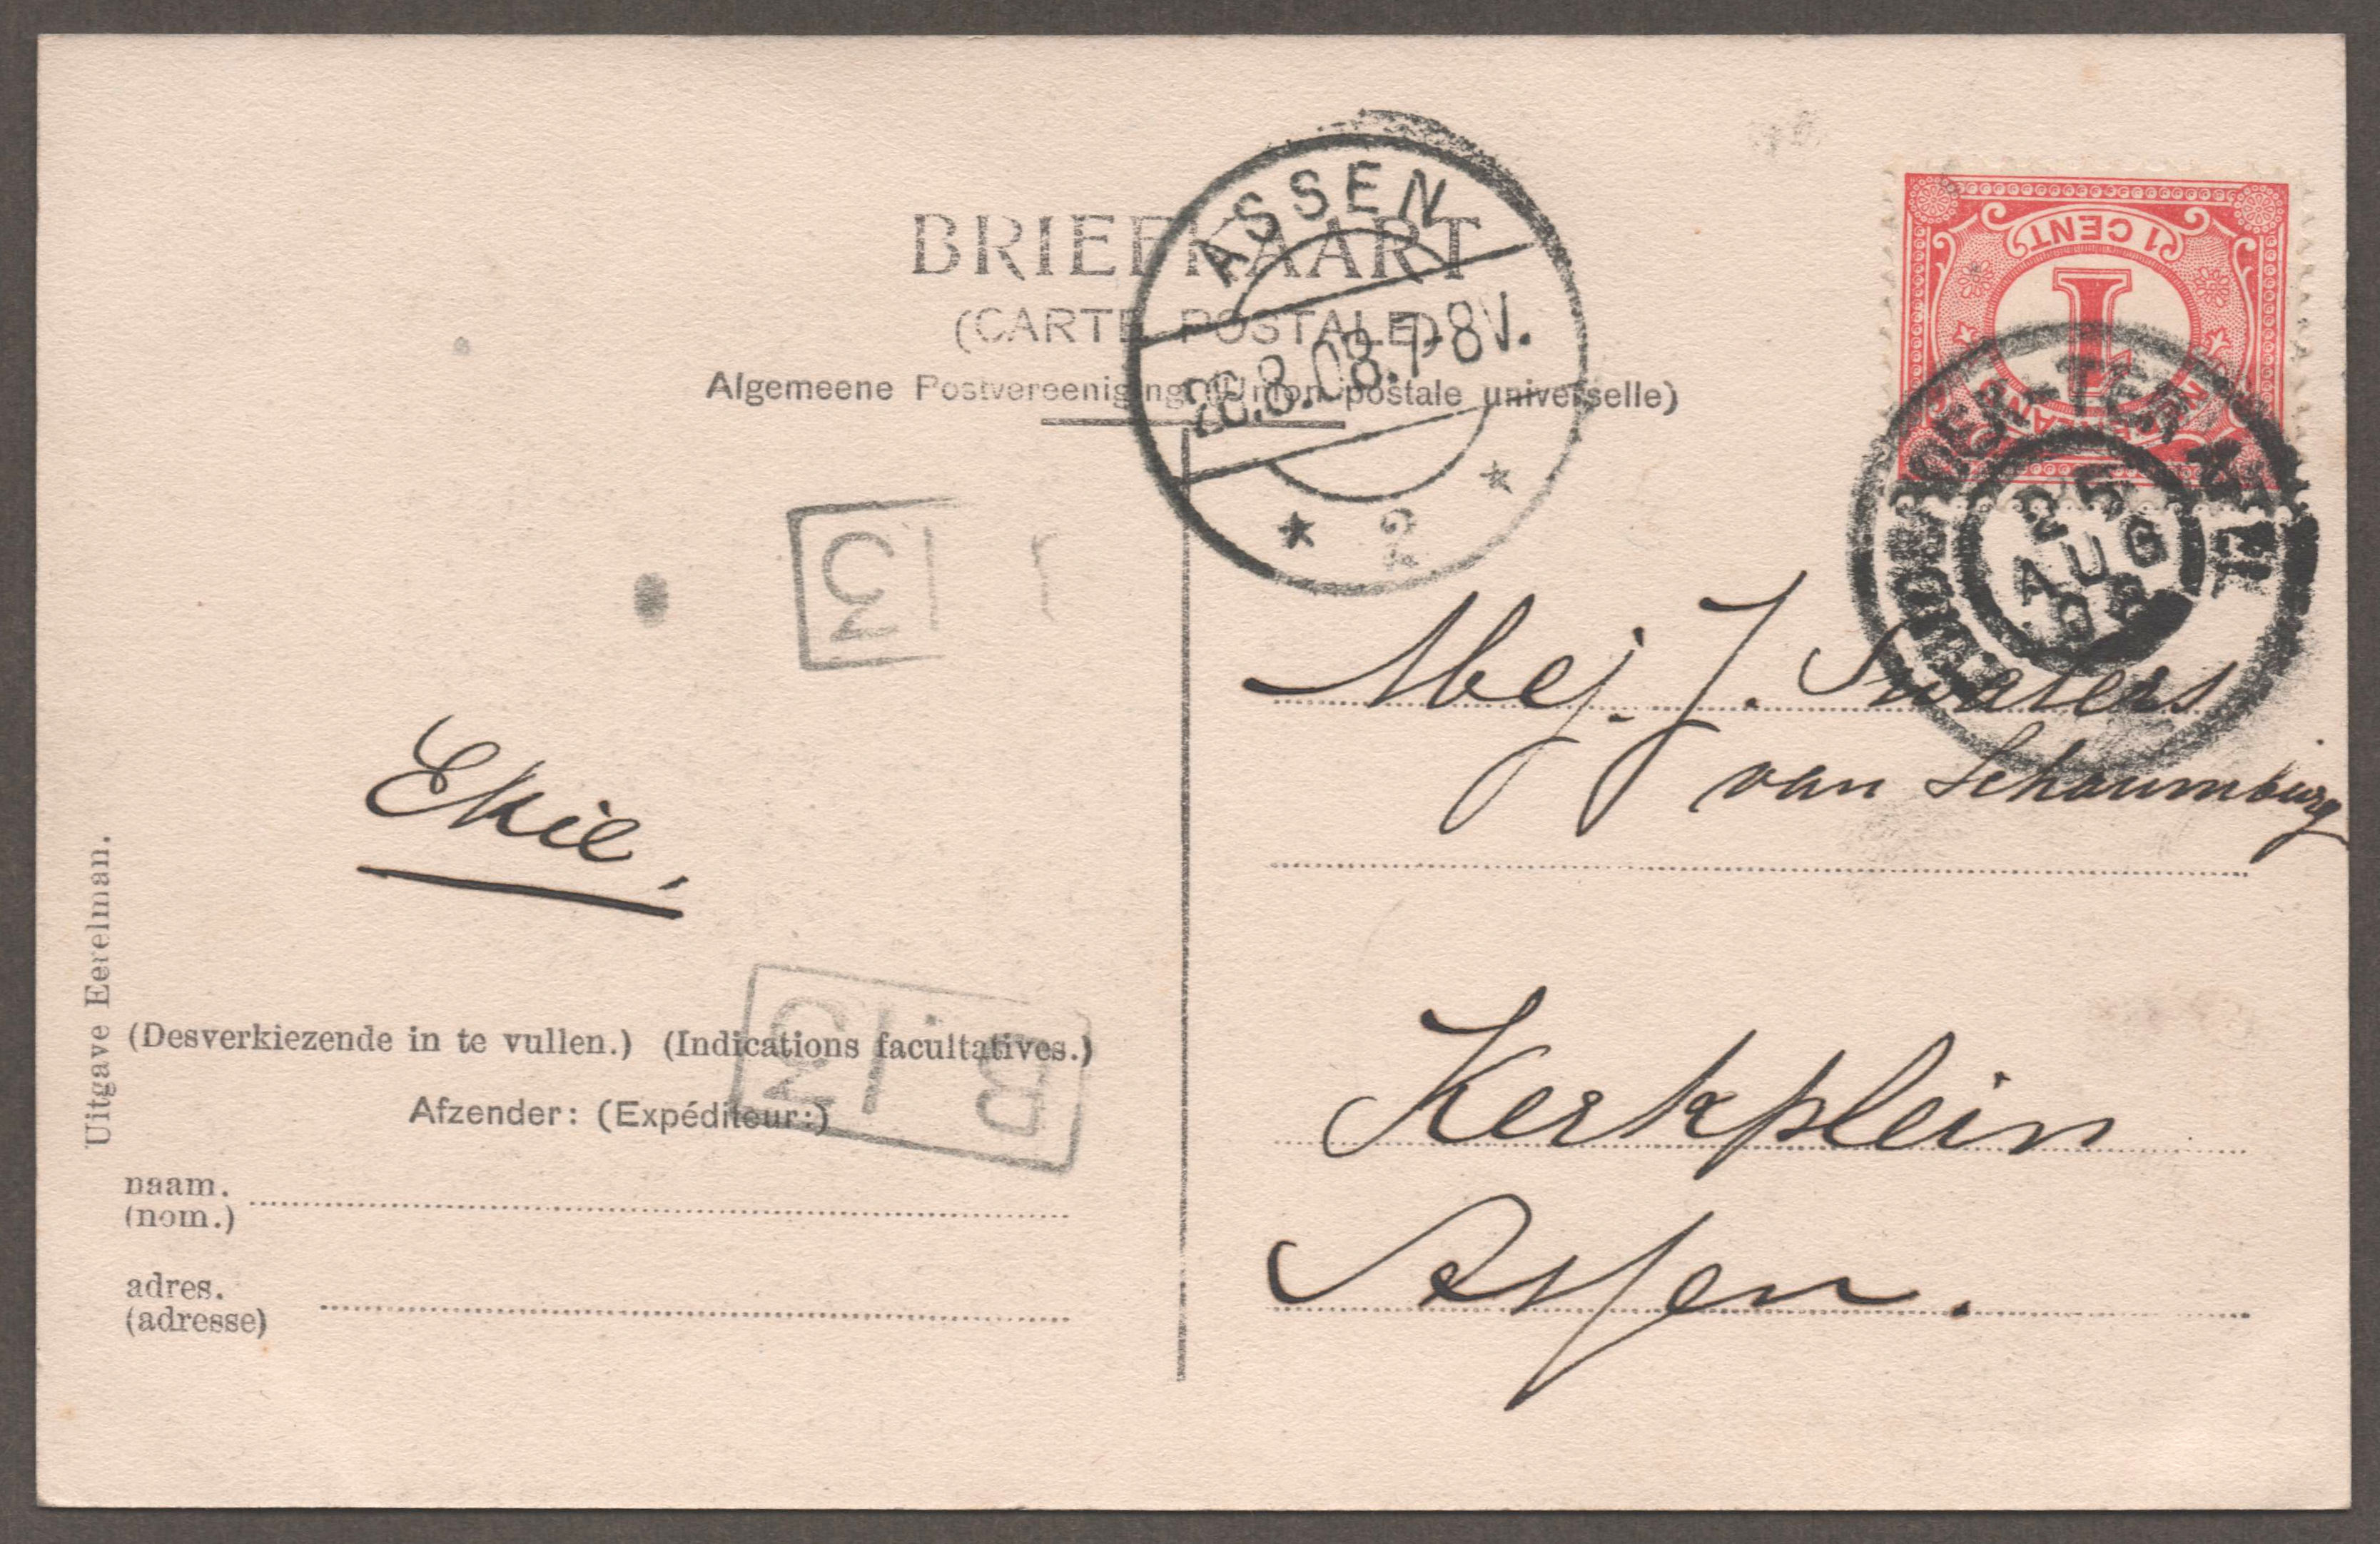 BRIEFKAART
(CARTE POSTALE)
Algemeene Postvereeniging (Union postale universelle)
ASSEN
26.8.08.7-8V.
2
1 CENT
1
25
AUG
08
Mej. J. Swaters
van Schaumburg
Kerkplein
Assen.
Ekie.
Uitgave Eerelman.
(Desverkiezende in te vullen.) (Indications facultatives.)
Afzender: (Expéditeur:)
naam.
(nom.)
adres.
(adresse)